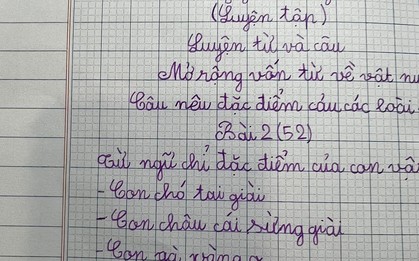 (Luyện tập)
Luyện từ và câu
Mở rộng vấn từ về vật nu
Câu nêu đặc điểm cảu các loài
Bài 2 (52)
Từ ngữ chỉ đặc điểm của con vậ
- Con chó tai giài
- Con châu cái sừng giài
- Con gà